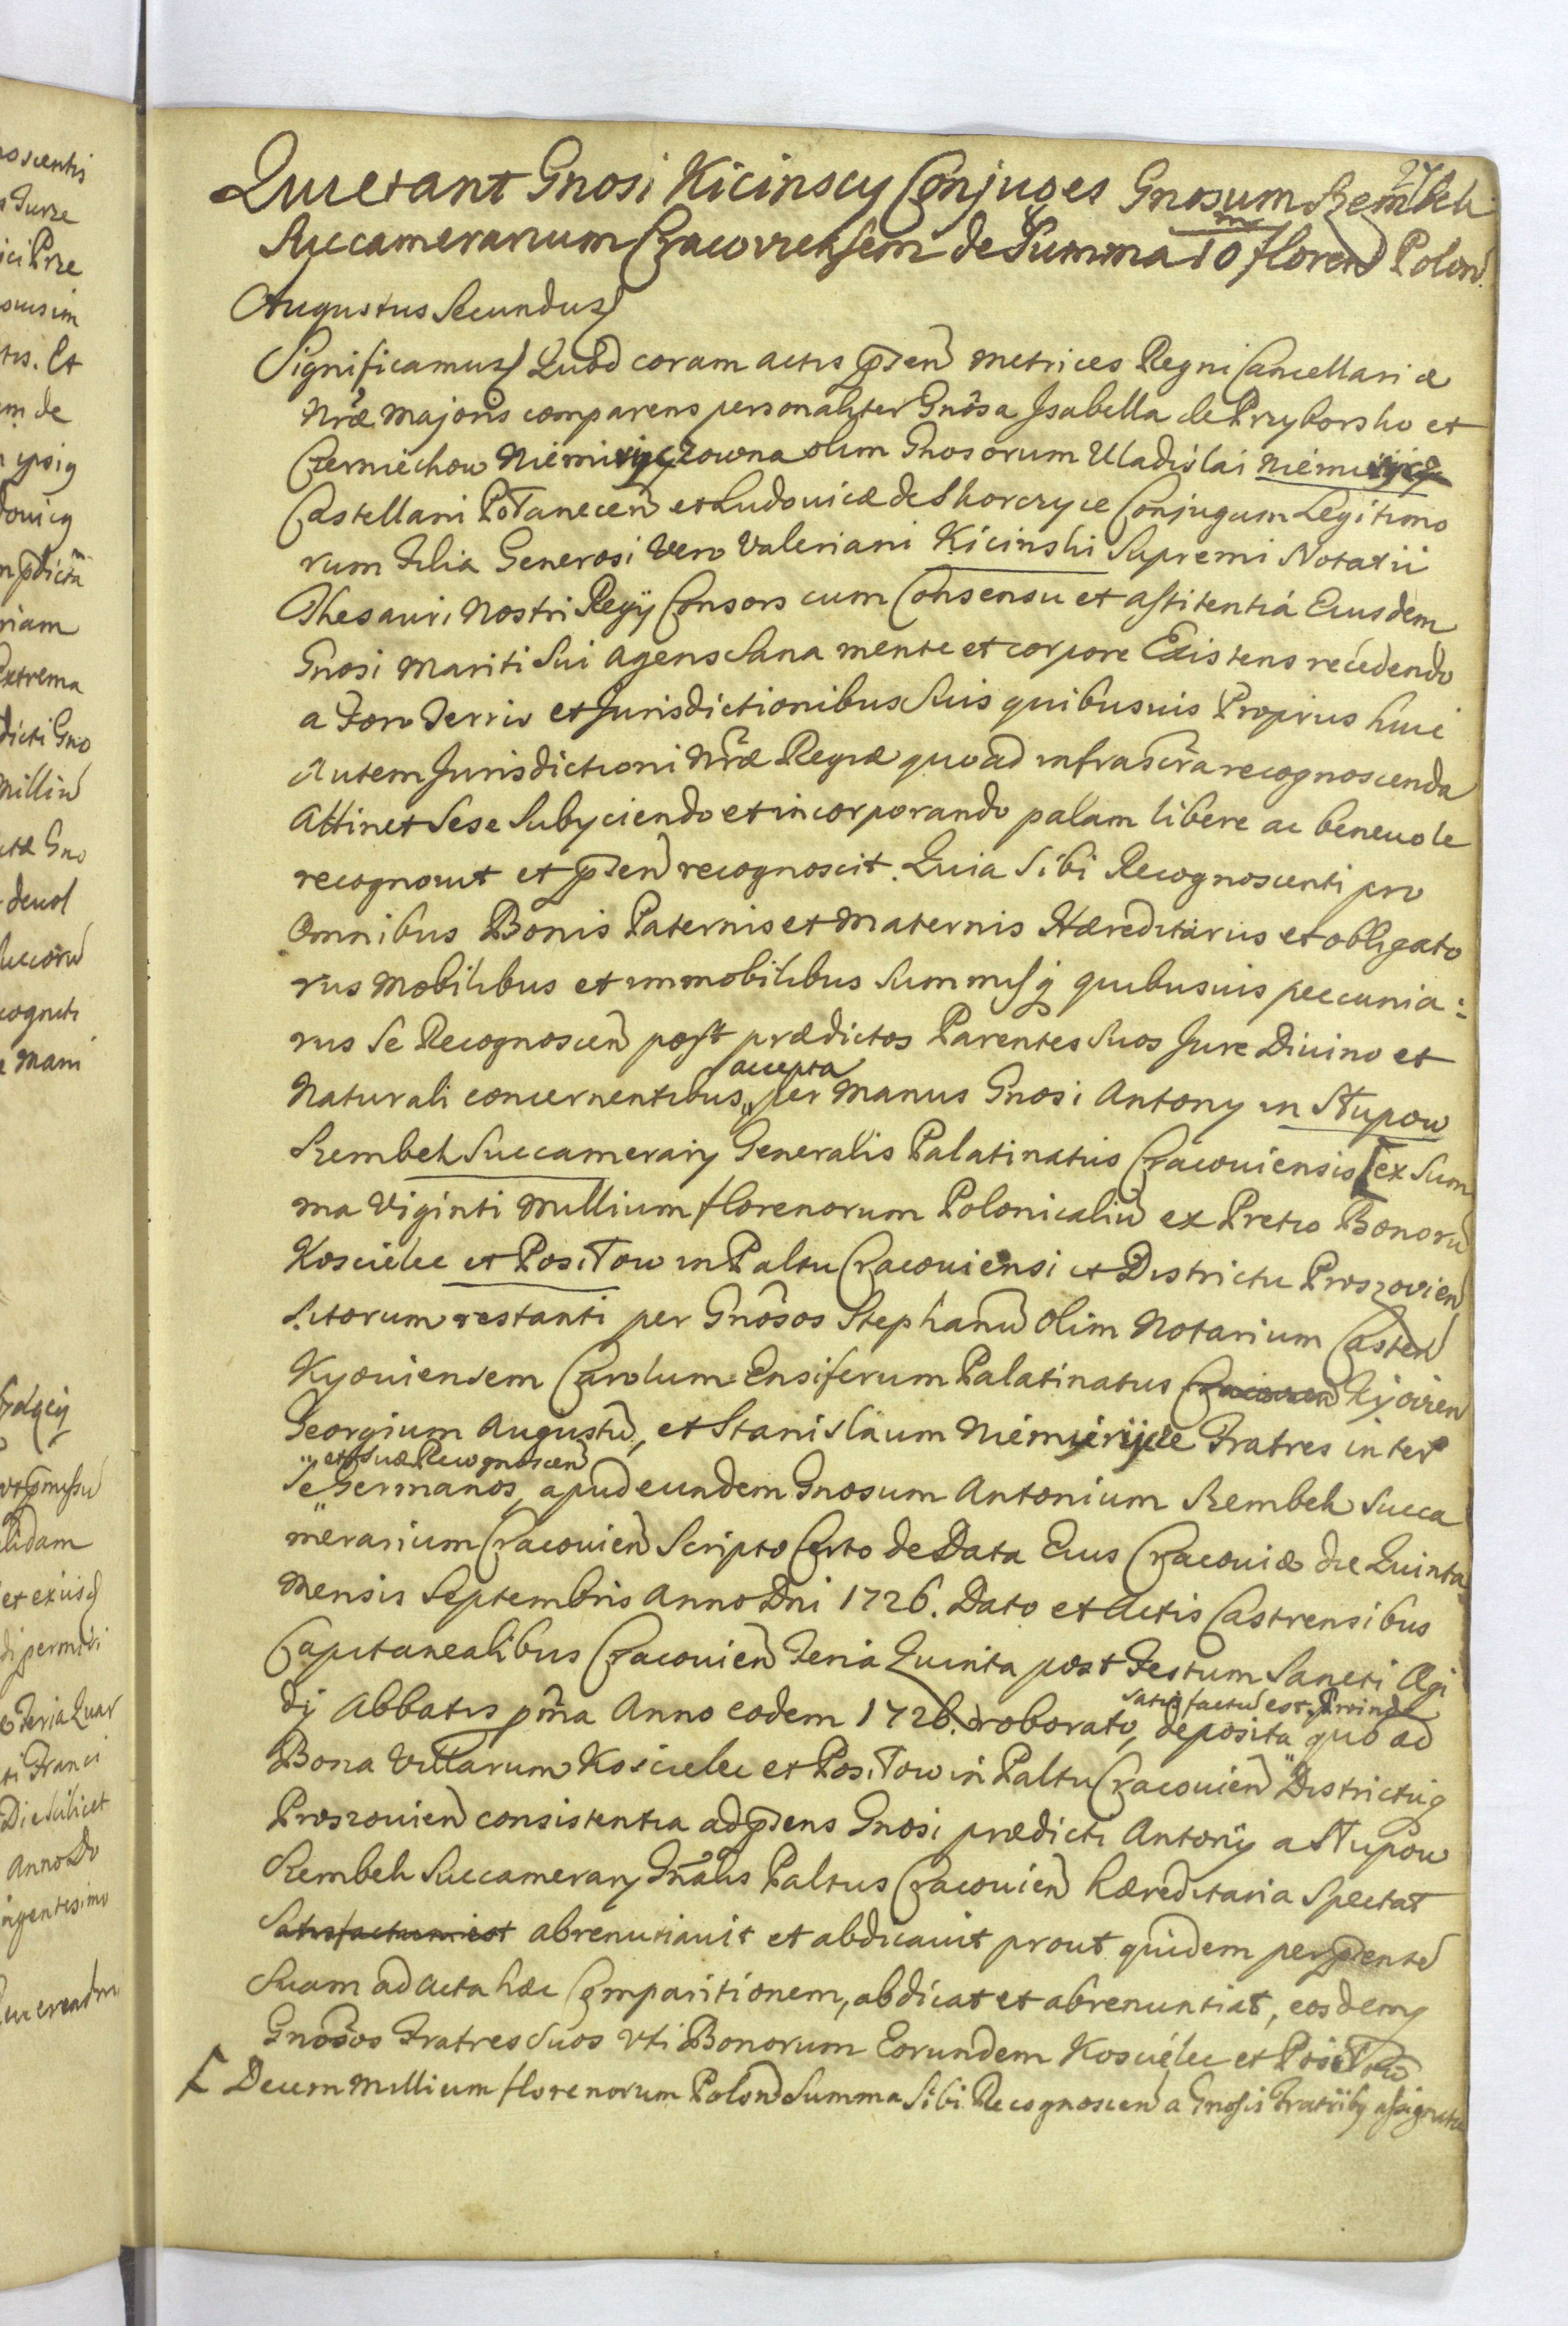 27
Quietant Gnosi Kicinscy Conjuges Gnosum Szembek
Succamerarium Cracoviensem de Summa 10 m floren Polon.
Augustus Secundus
Significamus Quod coram actis pͻsen Metrices Regni Cancellariæ
Nræ Majoris comparens personaliter Gnosa Isabella de Przyborsko et
Czerniechow Niemiryczowna olim Gnosorum Uladislai Niemirycz
Castellani Połanecen et Ludovicæ de Skorczyce Conjugum Legitimo
rum Filia Generosi Vero Valeriani Kicinski Supremi Notarii
Thesauri Nostri Regij Consors cum Consensu et assitentiá Eiusdem
Gnosi Mariti Sui Agens Sana mente et corpore Existens recedendo
a Foro Terris et Jurisdictionibus Suis quibusuis Proprius huic
Autem Jurisdictioni Nræ Regiæ quoad infrascra recognoscenda
Attinet Sese Subyciendo et incorporando palam libere ac beneuole
recognovit et pͻsen recognoscit. Quia Sibi Recognoscenti pro
Omnibus Bonis Paternis et Maternis Hæreditariis et obligato
riis Mobilibus et immobilibus Summisq quibusuis peccunia:
riis Se Recognoscen post prædictos Parentes Suos Jure Diuino et
accepta
Naturali concernentibus, per Manus Gnosi Antony in Słupow
Szembek Succamerary Generalis Palatinatus Cracouiensis [ex Sum
ma Viginti Millium florenorum Polonicaliu ex Pretio Bonoru
Koscielec et Posiłow in Paltu Cracouiensi et Districtu Proszovien
Sitorum restanti per Gnosos Stephanu Olim Notarium Castren
Kyouiensem Carolum Ensiferum Palatinatus Cracovien Kijovien
Georgium Augustu, et Stanislaum Niemierijcze Fratres inter
et Suæ Recognoscen
Se Germanos, apud eundem Gnosum Antonium Szembek Succa
merarium Cracouien Scripto Certo de Data Eius Cracouiæ die Quinta
Mensis Septembris Anno Dni 1726. Dato et Actis Castrensibus
Capitanealibus Cracouien Feria Quinta post Festum Sancti Ægi
satisfactu est. Proinde
dij Abbatis pma Anno eodem 1726. roborato, deposita quo ad
Bona Villarum Koscielec et Posiłow in Paltu Cracouien Districtuq
Proszouien consistentia ad pͻsens Gnosi prædicti Antonij a Słupow
Szembek Succamerary Gnalis Paltus Cracouien hæreditaria Spectat
Satisfactum est abrenutiauit et abdicauit prout quidem per pͻsente
Suam ad Acta hæc Comparitionem, abdicat et abrenuntiat, eosdemq
Gnosos Fratres Suos vti Bonorum Eorundem Koscielec et Posiłow
[ Decem Millium florenorum Polon Summa Sibi Recognoscen a Gnosis Fratribq assignata